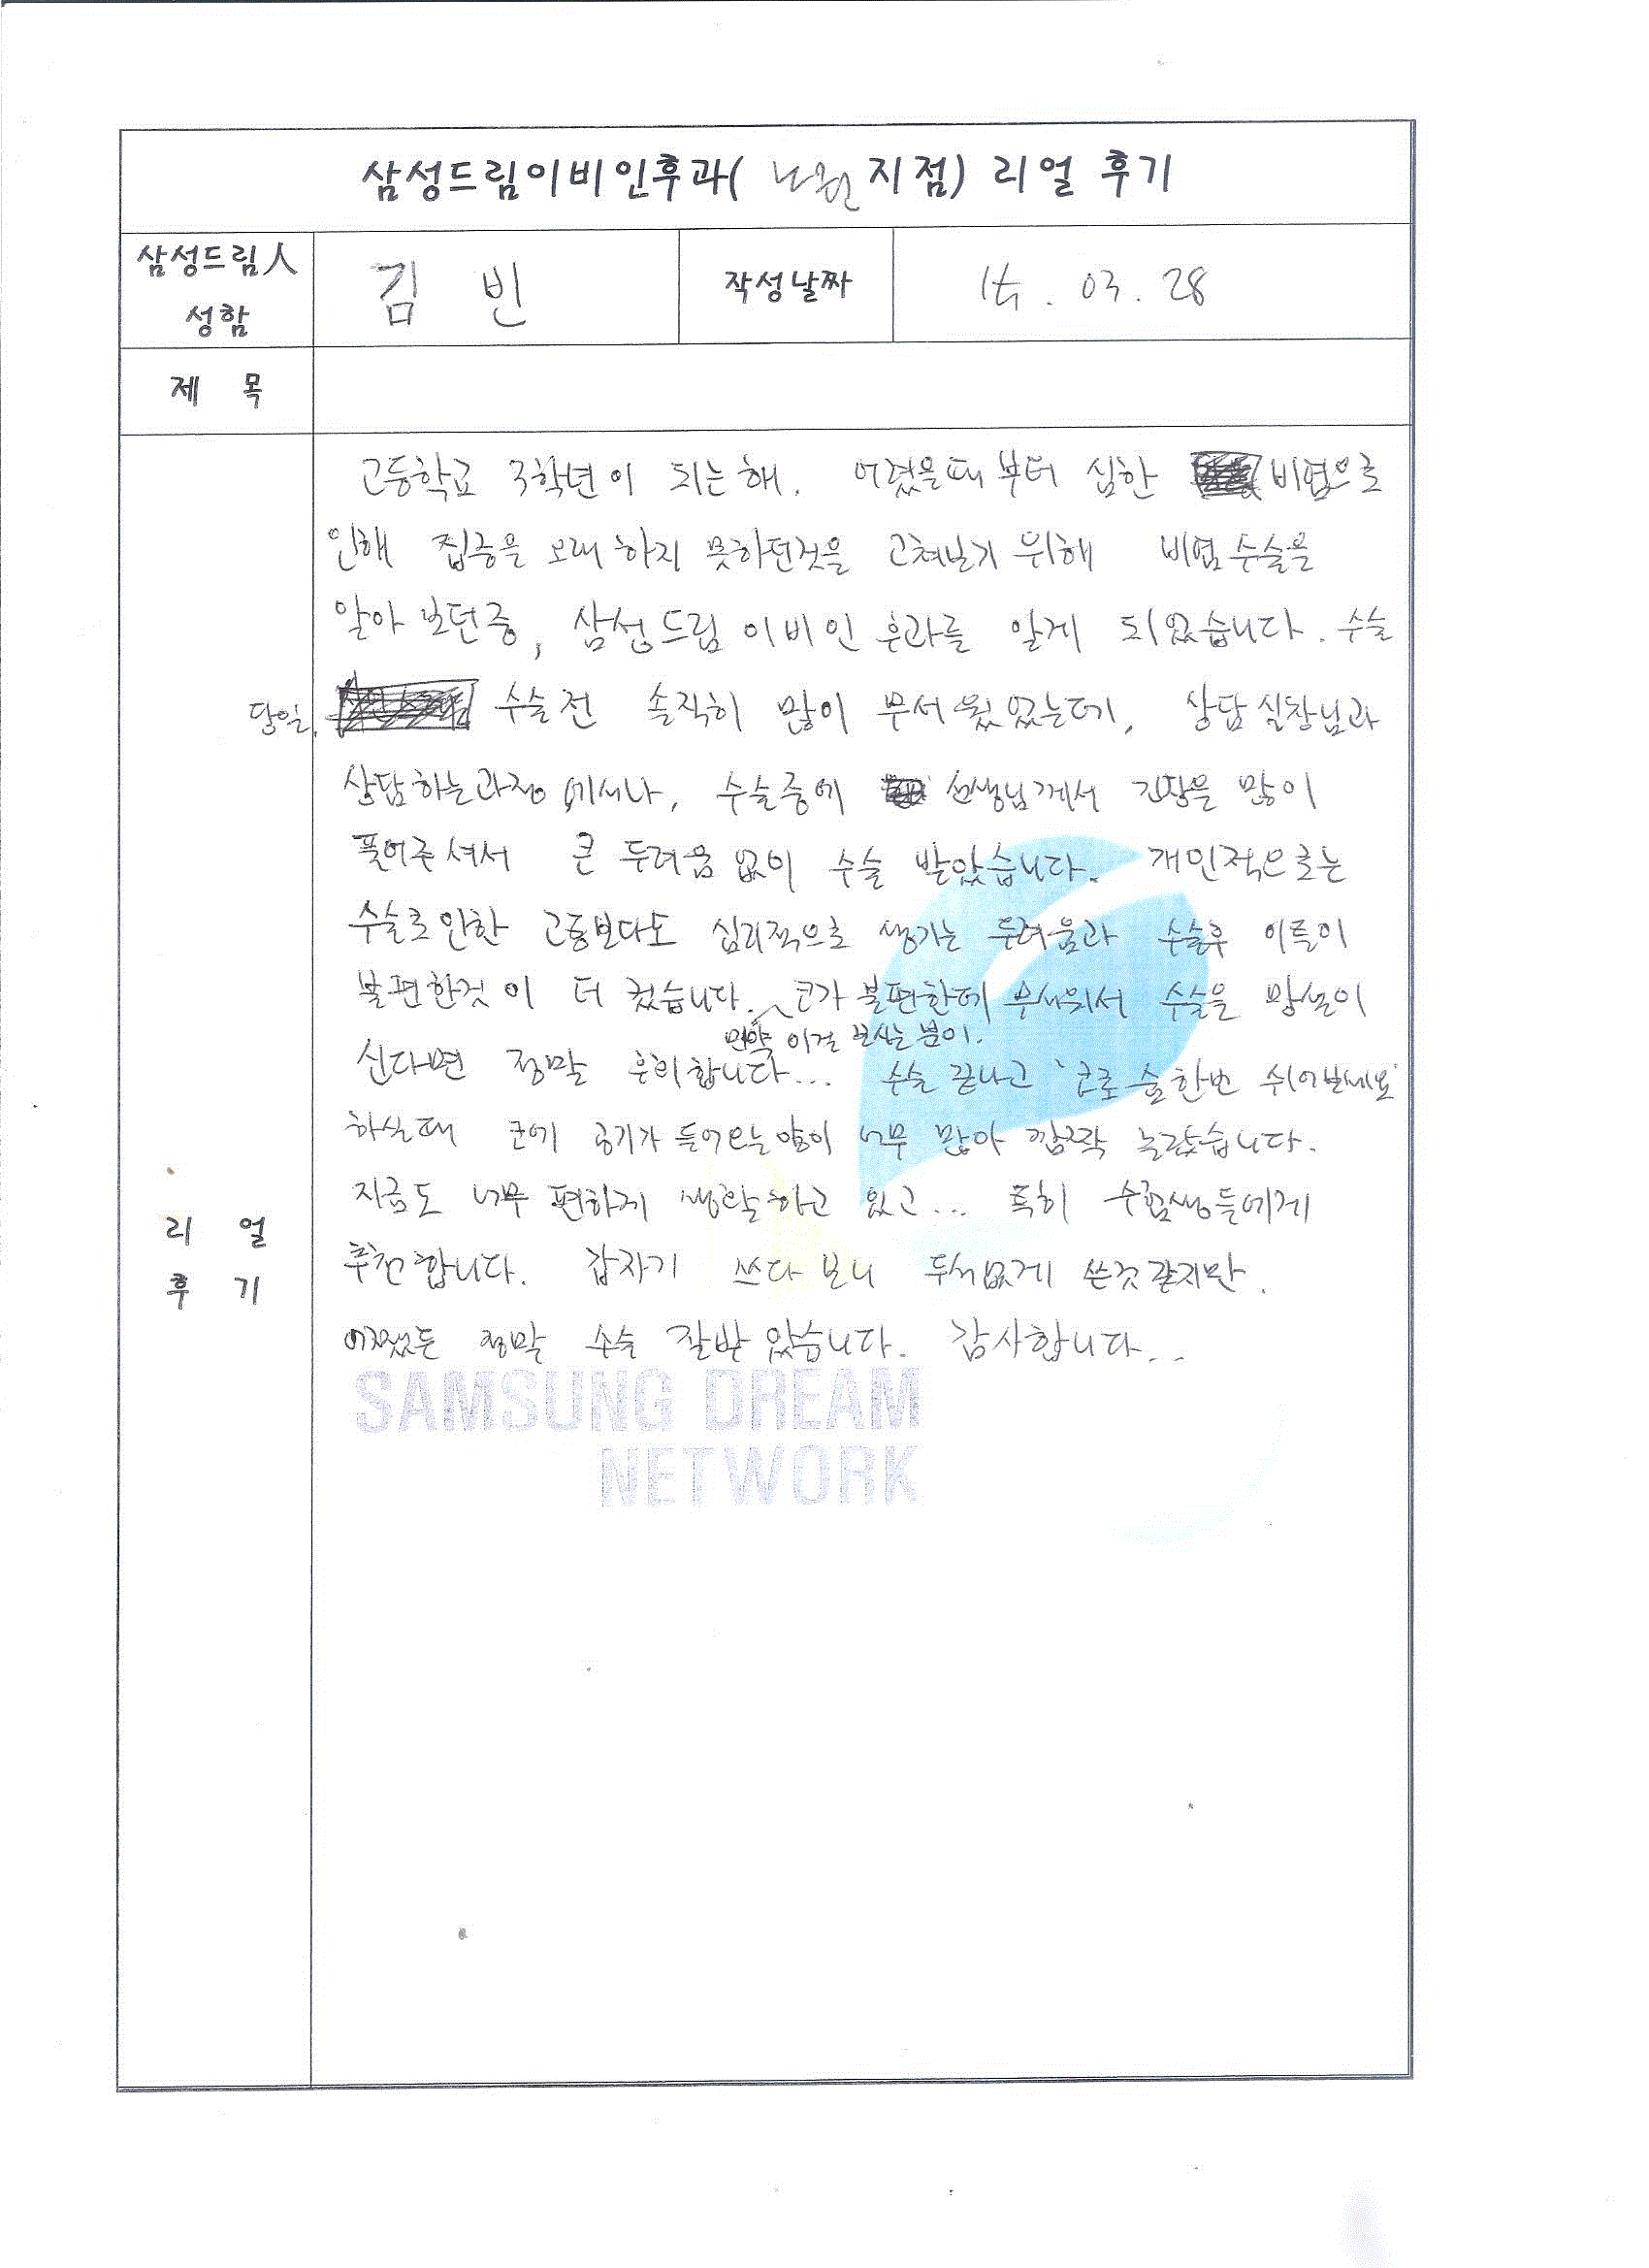 삼성드림이비인후과( 노원 지점) 리얼 후기
삼성드림人 성함
김 빈
작성날짜
14. 03. 28
제 목
리 얼 후 기
고등학교 3학년이 되는해. 어렸을때부터 심한 비염으로
인해 집중을 오래 하지 못하던것을 고쳐보기 위해 비염수술을
알아 보던중, 삼성드림 이비인 후과를 알게 되었습니다. 수술
당일, 수술전 솔직히 많이 무서웠었는데, 상담실장님과
상담하는과정에서나, 수술중에 선생님께서 긴장을 많이
풀어주셔서 큰 두려움없이 수술 받았습니다. 개인적으로는
수술로인한 고통보다도 심리적으로 생기는 두려움과 수술후 이틀이
불편한것이 더 컸습니다. 코가 불편한데 무서워서 수술을 망설이
만약 이걸 보시는 분이.
신다면 정말 합니다... 수술 끝나고 '코로 숨한번 쉬어보세요'
하실때 코에 공기가 들어오는양이 너무 많아 깜짝 놀랐습니다.
지금도 너무 편하게 생활하고 있고... 특히 수험생들에게
추천합니다. 갑자기 쓰다보니 두서없게 쓴것같지만.
어쨌든 정말 수술 잘받았습니다. 감사합니다..
SAMSUNG DREAM
NETWORK